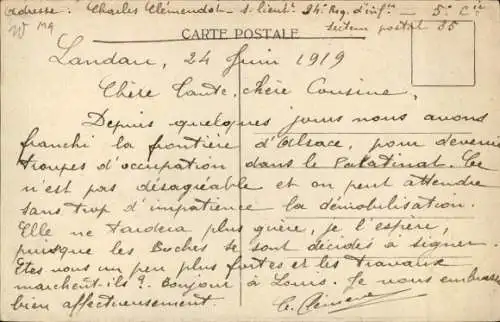 adresse : Charles Clémendot - s. lieutt 24e Rég. d'inftie - 5e Cie
secteur postal 85
CARTE POSTALE
Landau, 24 Juin 1919
Chère Tante, chère Cousine,
Depuis quelques jours nous avons
franchi la frontière d'Alsace, pour devenir
troupes d'occupation dans le Palatinat. Ce
n'est pas désagréable et on peut attendre
sans trop d'impatience la démobilisation.
Elle ne tardera plus guère, je l'espère,
puisque les Boches se sont décidés à signer.
Etes vous un peu plus fortes et les travaux
marchent-ils ? Bonjour à Louis. Je vous embrasse
bien affectueusement.